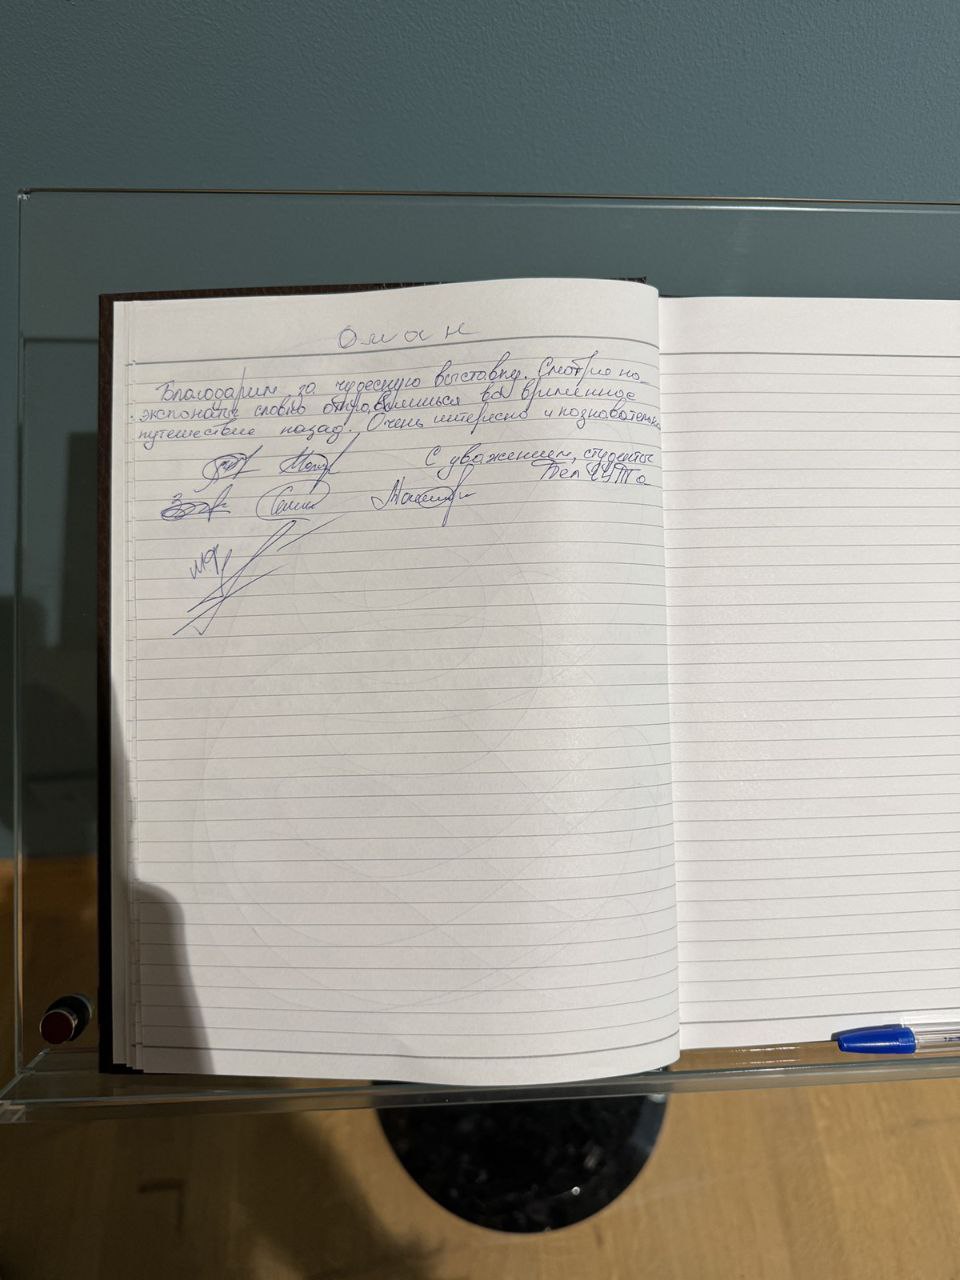 Оман
Благодарим за чудесную выставку. Смотрю на
экспонаты словно отправляешься во временное
путешествие назад. Очень интересно и познавательно
С уважением, студенты
БелГУТа